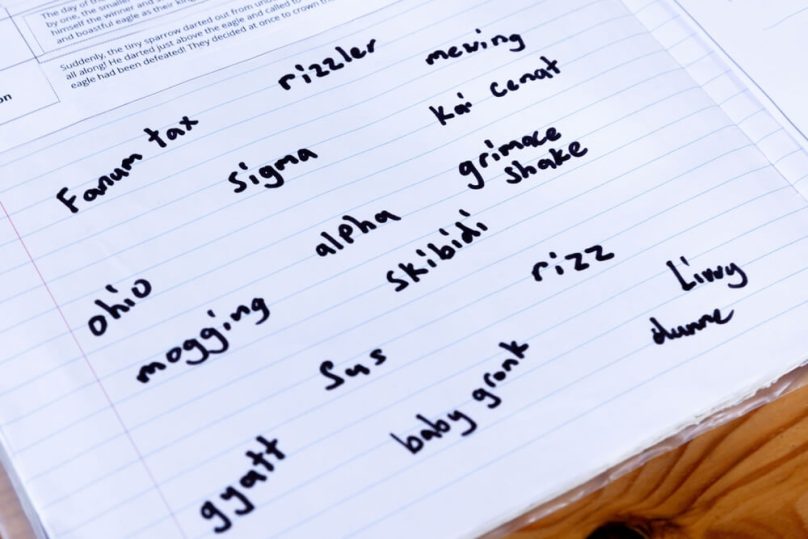 The day of th
by one, the smaller
himself the winner and
and boastful eagle as their king
Suddenly, the tiny sparrow darted out from un
all along! He darted just above the eagle and called to
eagle had been defeated! They decided at once to crown the
on
rizzler
mewing
Fanum tax
Kai cenat
sigma
grimace
shake
alpha
skibidi
ohio
rizz
Livvy
dunne
mogging
Sus
baby gronk
gyatt